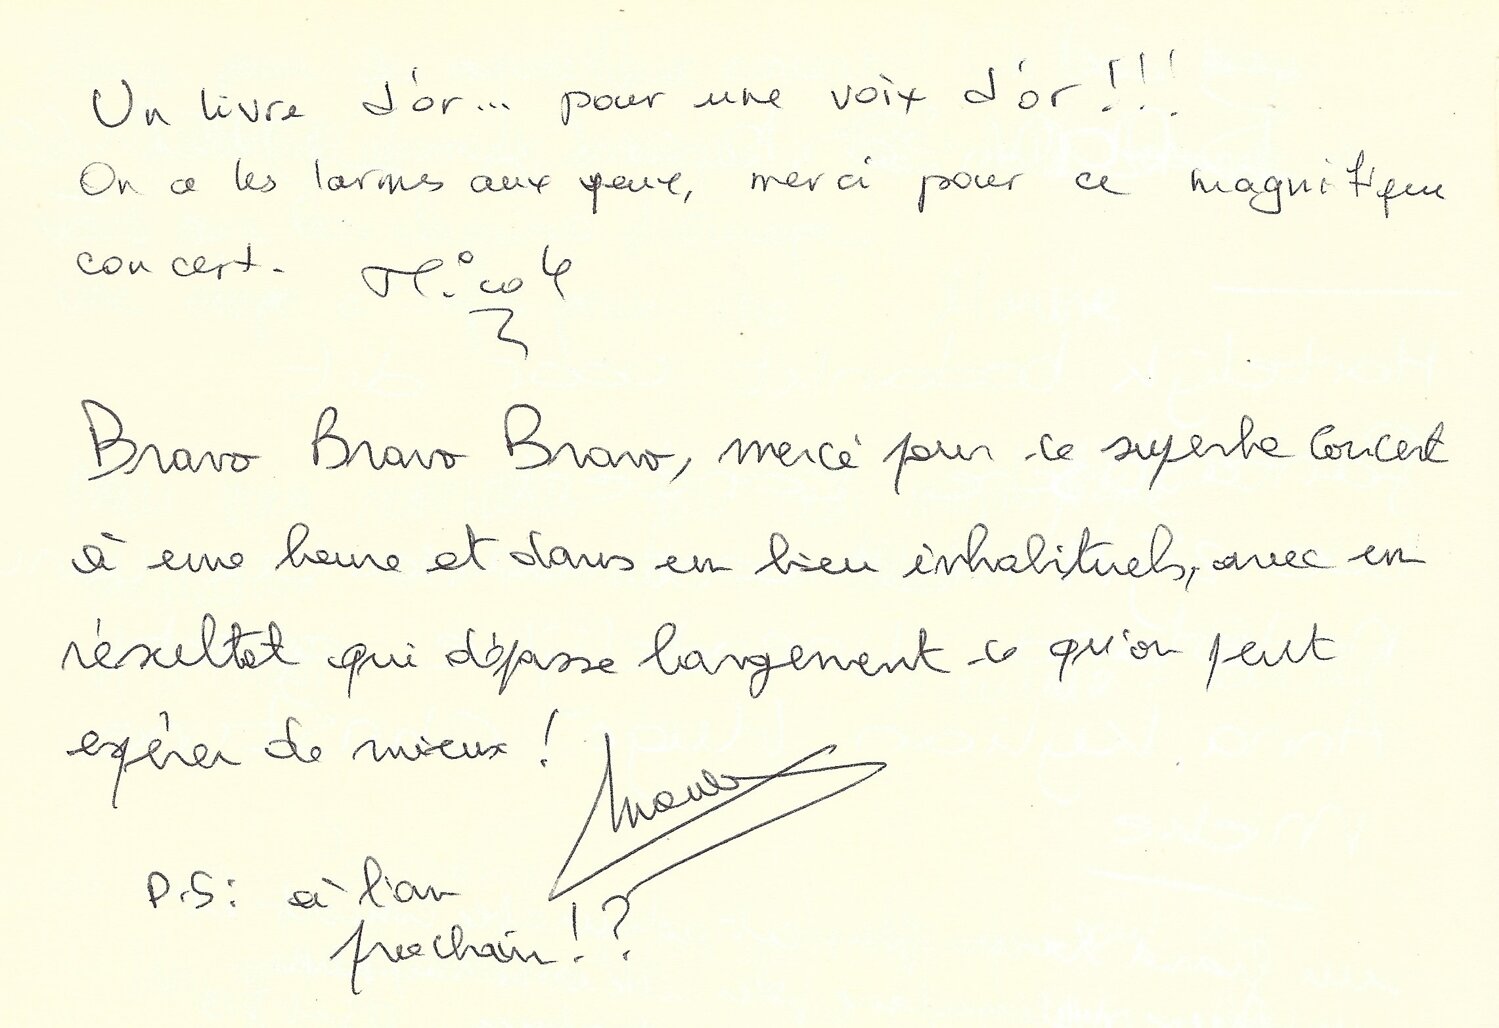 Un livre d'or... pour une voix d'or!!!
On a les larmes aux yeux, merci pour ce magnifique
concert.
Bravo Bravo Bravo, merci pour ce superbe concert
à une heure et dans un lieu inhabituels, avec un
résultat qui dépasse largement ce qu'on peut
espérer de mieux!
P.S: à l'an
prochain!?